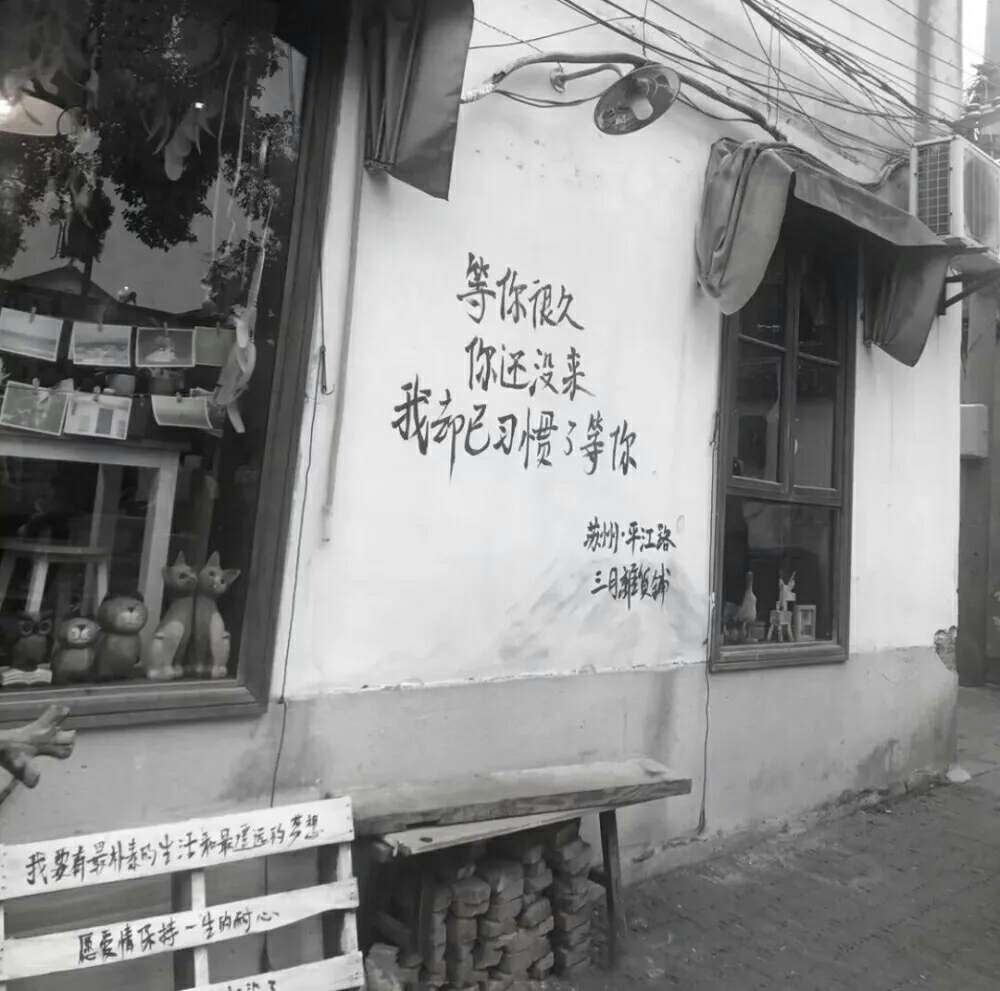 等你很久
你还没来
我却已习惯了等你
苏州·平江路
三月雜貨铺
我要有最朴素的生活和最遥远的梦想
愿爱情保持一生的耐心